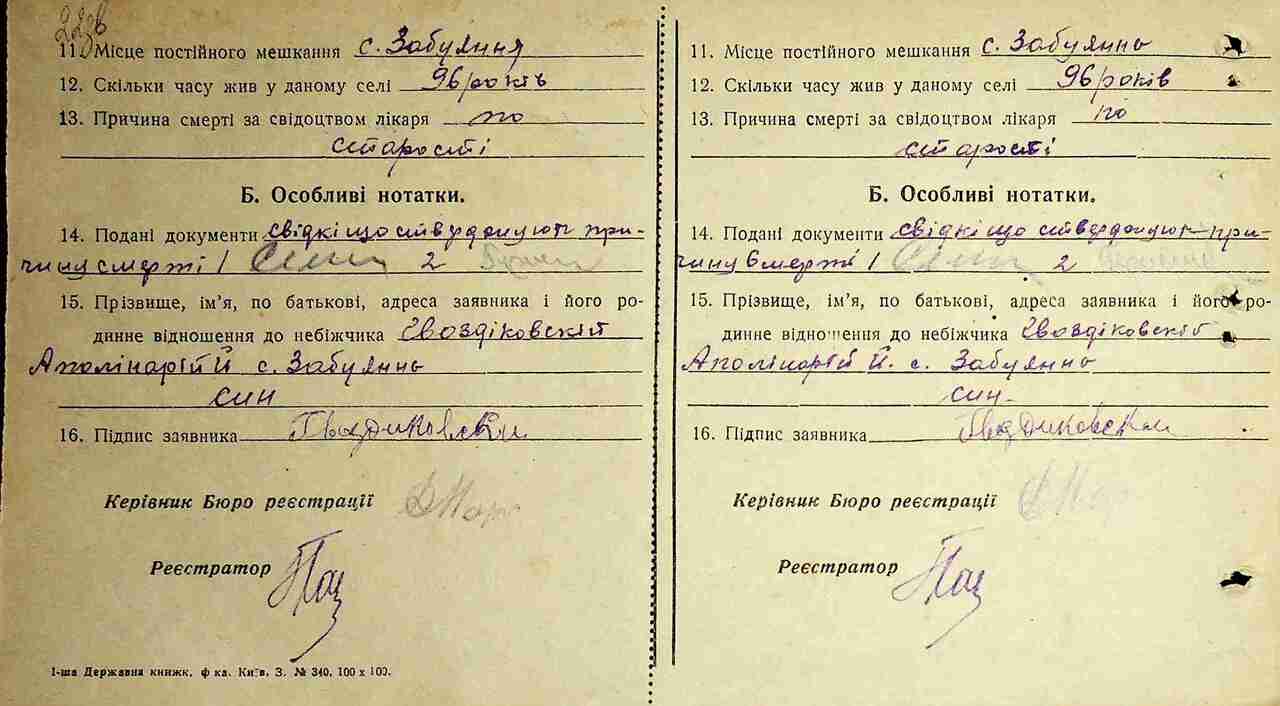 223
11. Місце постійного мешкання с. Забуяння
12. Скільки часу жив у даному селі 96 років
13. Причина смерті за свідоцтвом лікаря по
старості
Б. Особливі нотатки.
14. Подані документи свідкі що стверджуют при-
чину смерті 1 2
15. Прізвище, ім'я, по батькові, адреса заявника і його ро-
динне відношення до небіжчика Гвоздіковскій
Аполінарій Й с. Забуянь
син
16. Підпис заявника Гвоздиковский
Керівник Бюро реєстрації
Реєстратор
1-ша Державна книжк. ф ка. Київ. З. № 340. 100 х 100.
11. Місце постійного мешкання с. Забуянь
12. Скільки часу жив у даному селі 96 років
13. Причина смерті за свідоцтвом лікаря по
старості
Б. Особливі нотатки.
14. Подані документи свідкі що стверджуют при-
чину смерті 1 2
15. Прізвище, ім'я, по батькові, адреса заявника і його ро-
динне відношення до небіжчика Гвоздіковскій
Аполінарій Й. с. Забуянь
син.
16. Підпис заявника Гвоздиковский
Керівник Бюро реєстрації
Реєстратор